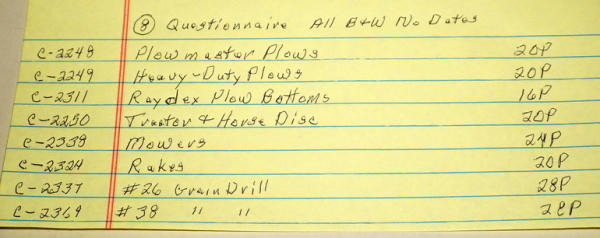 ⑧ Questionnaire All B+W No Dates
C-2248 Plowmaster Plows 20P
C-2249 Heavy-Duty Plows 20P
C-2311 Raydex Plow Bottoms 16P
C-2250 Tractor + Horse Disc 20P
C-2339 Mowers 24P
C-2324 Rakes 20P
C-2337 #26 Grain Drill 28P
C-2369 #38 " " 28P